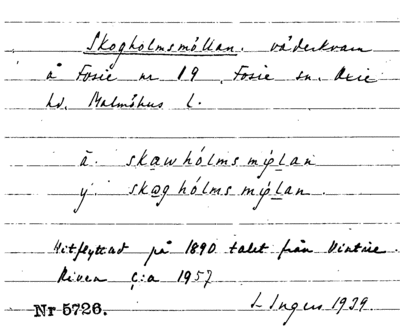 Skogholmsmöllan. väderkvarn
å Fosie nr 19, Fosie sn. Oxie
hd. Malmöhus l.
ä. skaw hólms mýlan
y. skog hólms mýlan.
Hitflyttad på 1890 talet från Vintrie.
Riven c:a 1957
Nr 5726.
Ingers 1939.